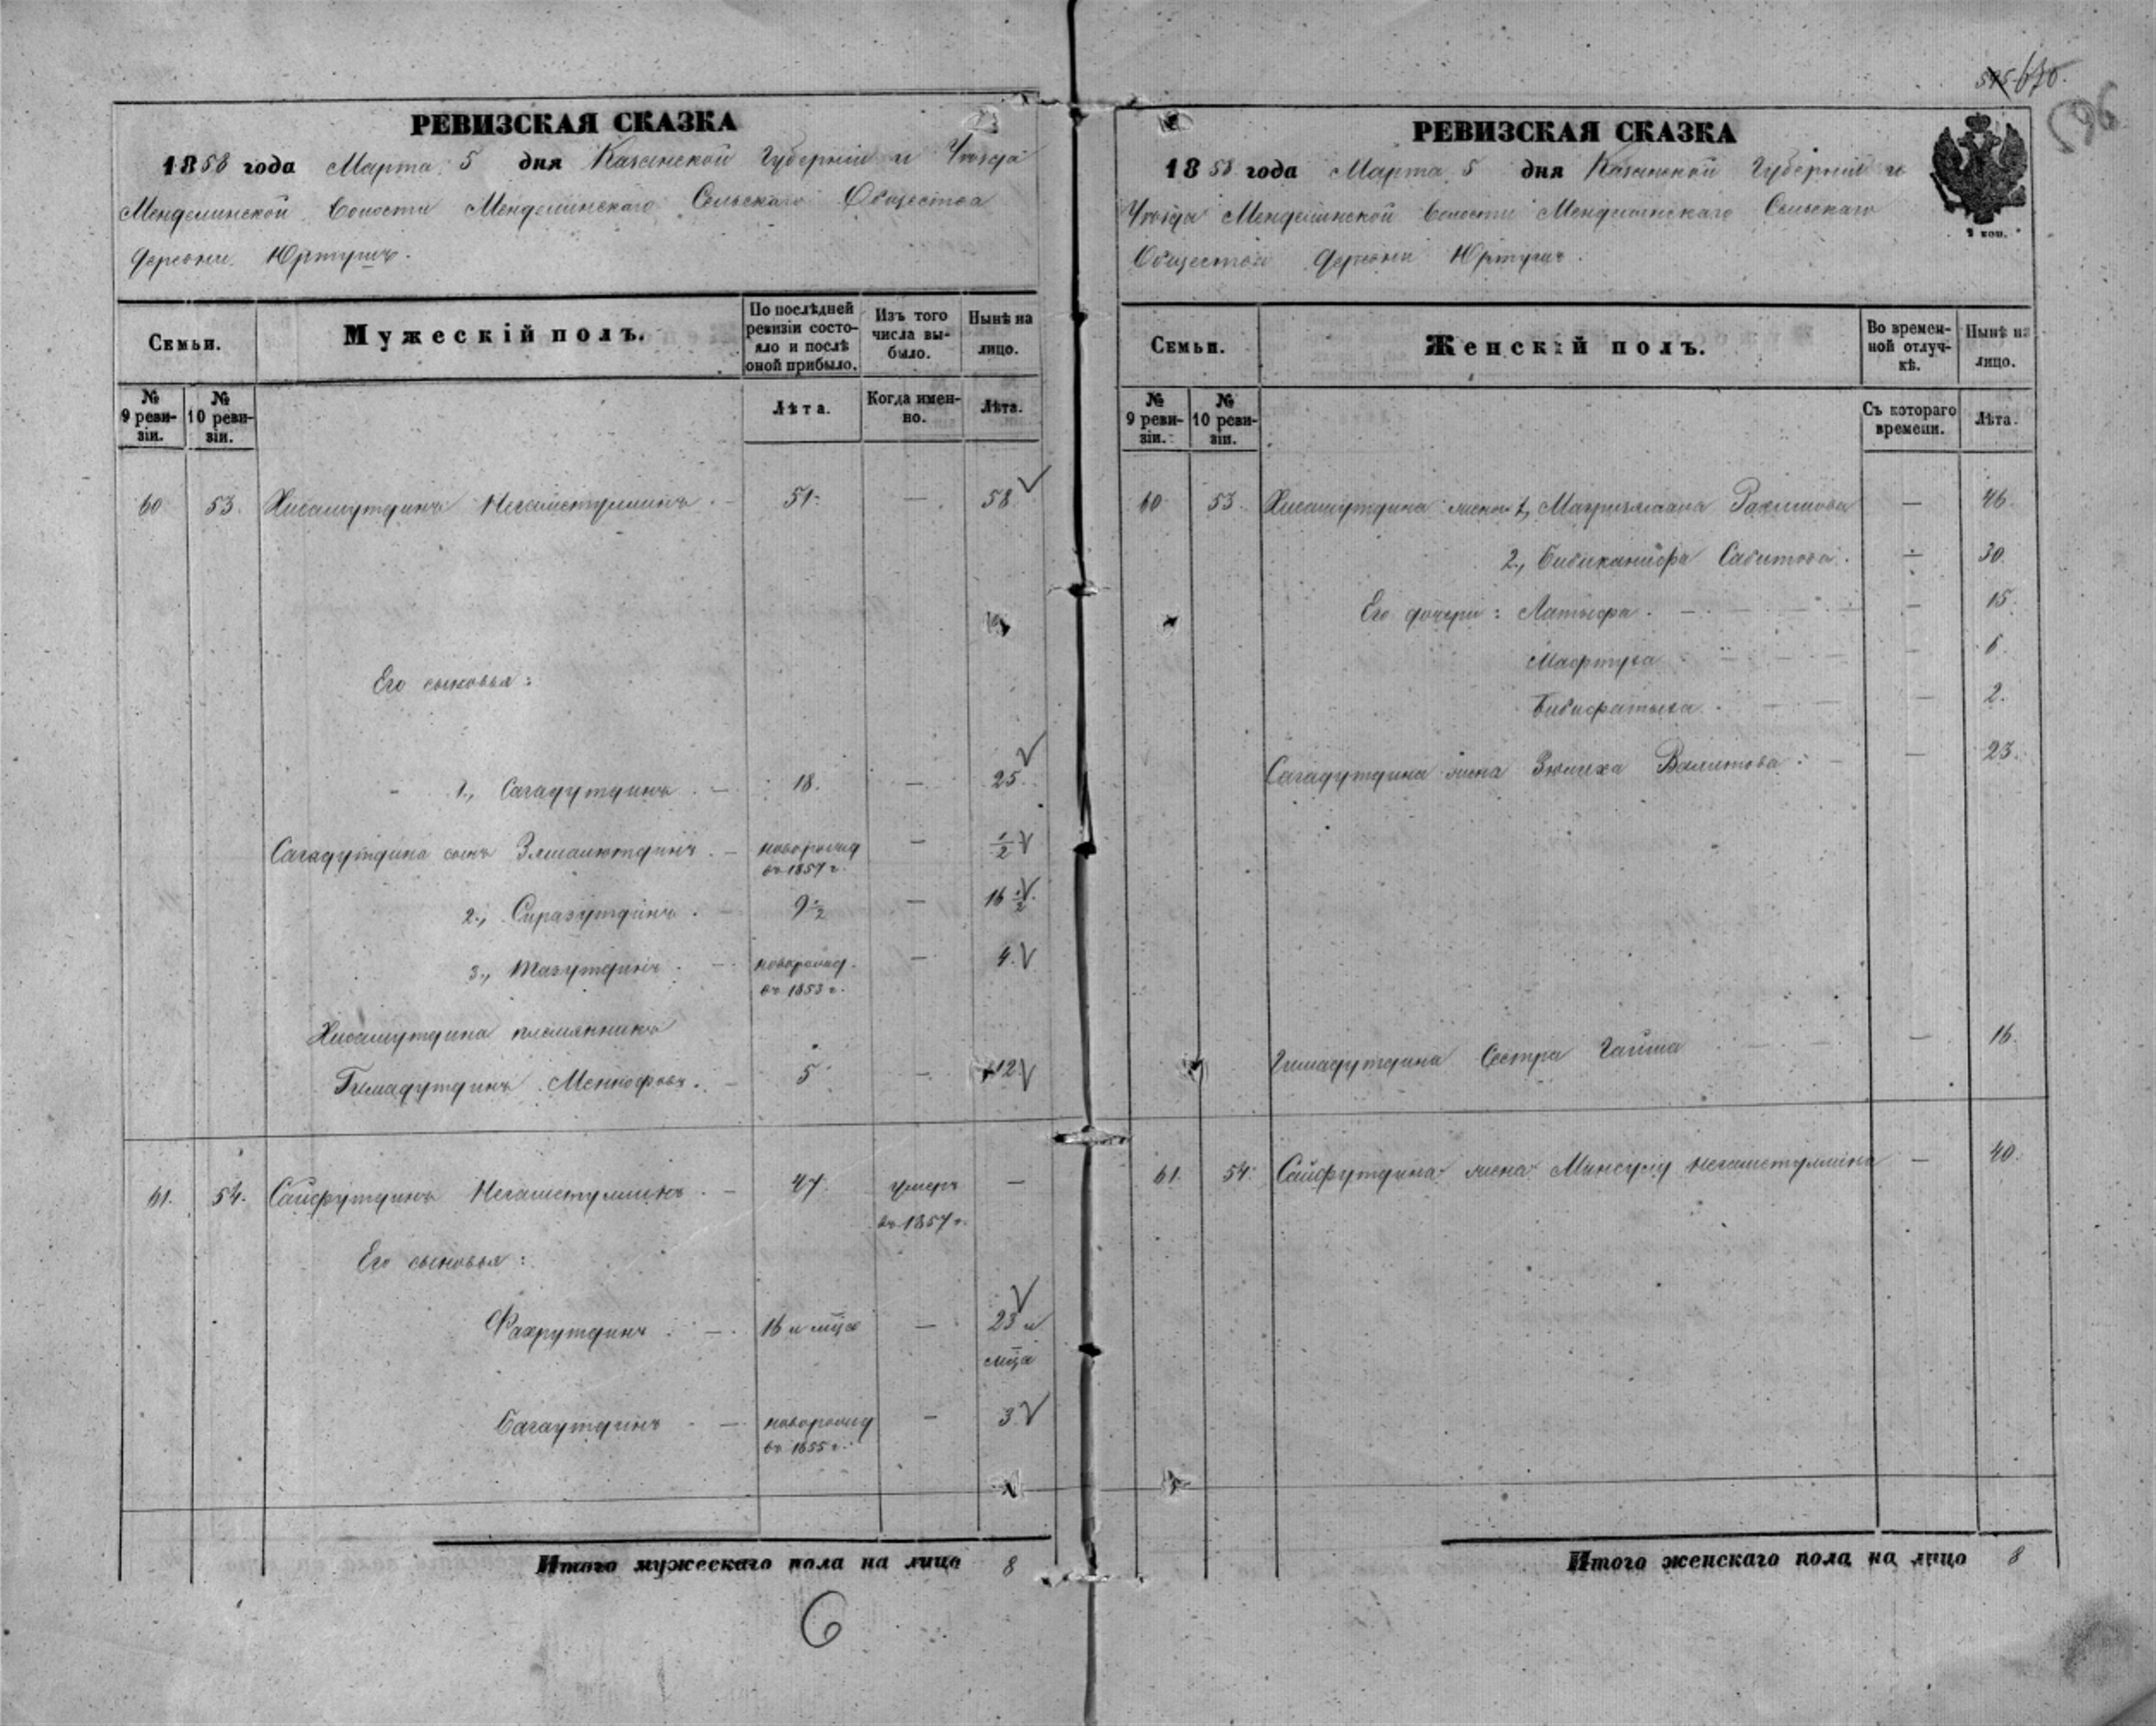 595 670.
596
РЕВИЗСКАЯ СКАЗКА
1858 года Марта 5 дня Казанской Губерніи и Уѣзда
Менделинской Волости Менделинскаго Сельскаго Общества
деревни Юртушъ.
Семьи.
Мужескій полъ.
По послѣдней ревизіи состояло и послѣ оной прибыло.
Изъ того числа выбыло.
Нынѣ на лицо.
№ 9 ревизіи.
№ 10 ревизіи.
Лѣта.
Когда именно.
Лѣта.
60 53. Хисамутдинъ Негаметуллинъ. — 51. — 58
Его сыновья:
1., Сагадутдинъ. — 18. — 25.
Сагадутдина сынъ Зямалютдинъ. — новорожд въ 1857 г. — 1/2
2., Сиразутдинъ. — 9 1/2 — 16 1/2.
3., Тазутдинъ. — новорожд. въ 1853 г. — 4.
Хисамутдина племянникъ
Гимадутдинъ — 5 — 12
61. 54. Сайфутдинъ Негаметуллинъ. — 47. умеръ въ 1857 г. —
Его сыновья:
Фахрутдинъ. — 16 и мца — 23 и мца
Багаутдинъ — новорожд въ 1855 г. — 3
Итого мужескаго пола на лицо 8
6
РЕВИЗСКАЯ СКАЗКА
1858 года Марта 5 дня Казанской Губерніи и
Уѣзда Менделинской Волости Менделинскаго Сельскаго
Общества деревни Юртушъ.
Семьи.
Женскій полъ.
Во временной отлучкѣ.
Нынѣ на лицо.
№ 9 ревизіи.
№ 10 ревизіи.
Съ котораго времени.
Лѣта.
60 53. Хисамутдина жена 1, Рахимова — 46.
2., Бибиканифа Сабитова. — 30.
Его дочери: Латыфа. — 15.
Мафтуха — 6.
Бибифатыха. — 2.
Сагадутдина жена Зюлиха Валитова: — 23.
Гимадутдина Сестра Гайша — 16.
61. 54. Сайфутдина жена Минсулу Негаметуллина — 40.
Итого женскаго пола на лицо 8